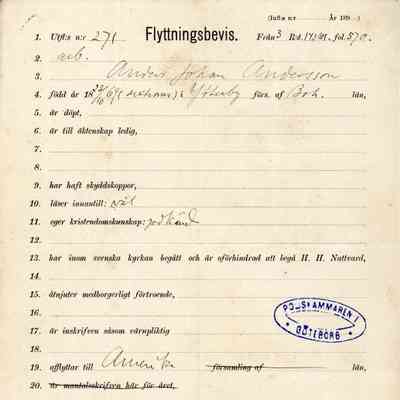 (Inft:s n:r År 189 .)
1. Utft:s n:r 271 Flyttningsbevis. Från 3 R:d. fol. 570.
2. arb.
3. Anders Johan Andersson
4. född år 18 i Ytterby förs. af Boh. län,
5. är döpt,
6. är till äktenskap ledig,
7.
8.
9. har haft skyddskoppor,
10. läser innantill: väl
11. eger kristendomskunskap: godkänd
12.
13. har inom svenska kyrkan begått och är oförhindrad att begå H. H. Nattvard,
14.
15. åtnjuter medborgerligt förtroende,
16.
17. är inskrifven såsom värnpliktig
18.
19. afflyttar till Amerika församling af län,
20. är mantalsskrifven här för året,
POLISKAMMAREN I
GÖTEBORG